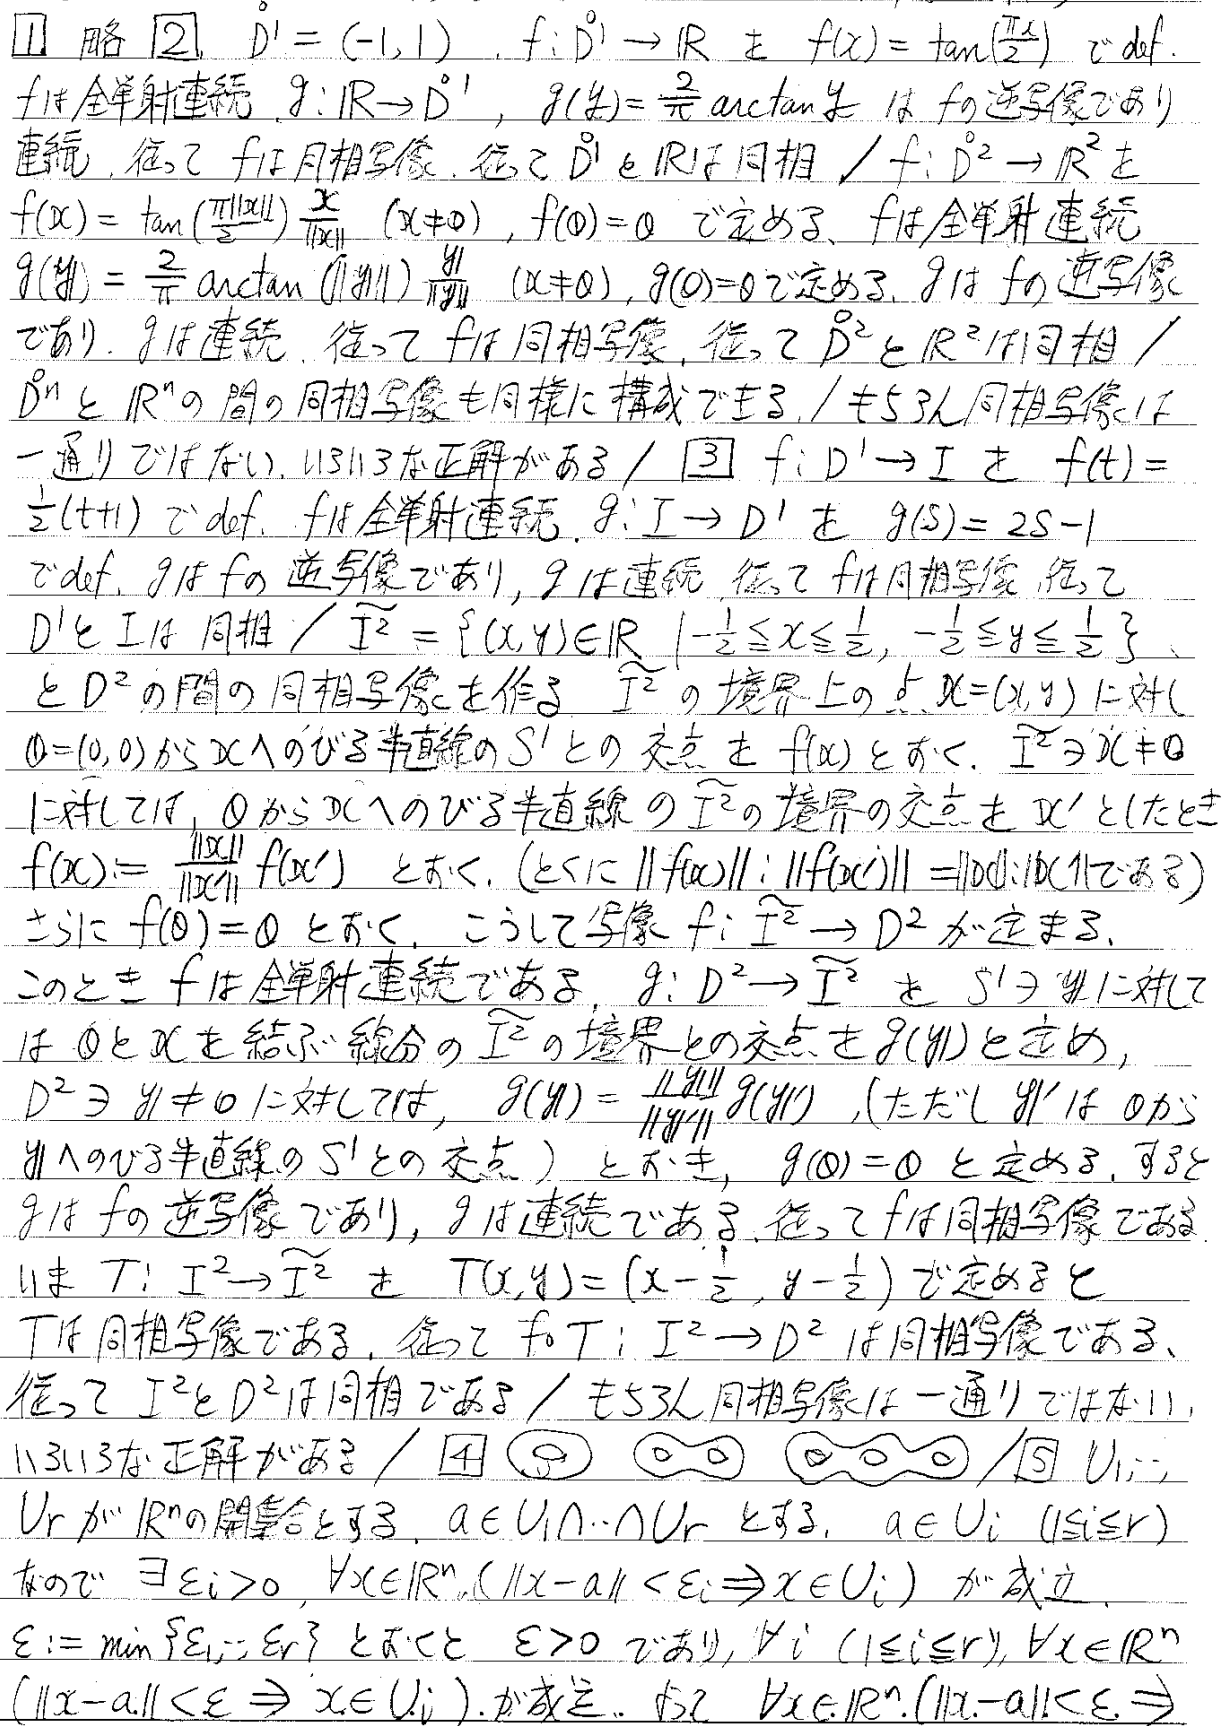 1 略 2. D̊¹ = (-1, 1) . f: D̊¹ → ℝ を f(x) = tan(πx/2) で def.
fは全単射連続. g: ℝ → D̊¹, g(y) = 2/π arctan y は fの逆写像であり
連続. 従って fは同相写像. 従って D̊¹ と ℝは同相 / f: D̊² → ℝ² を
f(x) = tan(π||x||/2) x/||x|| (x≠0), f(0)=0 で定める. fは全単射連続
g(y) = 2/π arctan(||y||) y/||y|| (x≠0), g(0)=0で定める. gは fの逆写像
であり. gは連続. 従って fは同相写像. 従って D̊² と ℝ²は同相 /
D̊ⁿ と ℝⁿの間の同相写像も同様に構成できる. / もちろん同相写像は
一通りではない. いろいろな正解がある / 3 f: D¹ → I を f(t) =
1/2(t+1) で def. fは全単射連続. g: I → D¹ を g(s) = 2s-1
でdef. gはfの逆写像であり, gは連続. 従って fは同相写像 従って
D¹と Iは 同相 / Ĩ² = {(x,y)∈ℝ | -1/2≦x≦1/2, -1/2≦y≦1/2}.
と D²の間の同相写像を作る Ĩ² の境界上の点 x=(x,y) に対し
0=(0,0)からxへのびる半直線のS¹との交点を f(x)とおく. Ĩ²∋x≠0
に対しては, 0からxへのびる半直線の Ĩ²の境界の交点を x'としたとき
f(x):= ||x||/||x'|| f(x') とおく. (とくに ||f(x)||:||f(x')||=||x||:||x'||である)
さらに f(0)=0 とおく. こうして写像 f: Ĩ² → D² が定まる.
このとき fは全単射連続である. g: D² → Ĩ² を S¹∋yに対して
は 0とxを結ぶ線分の Ĩ²の境界との交点を g(y)と定め,
D²∋y≠0 に対しては, g(y) = ||y||/||y'|| g(y') , (ただし y'は 0から
yへのびる半直線の S¹との交点) とおき, g(0)=0 と定める. すると
gは fの逆写像であり, gは連続である. 従って fは同相写像である.
いま T: I² → Ĩ² を T(x,y) = (x-1/2, y-1/2) で定めると
Tは同相写像である. 従って f∘T: I² → D² は同相写像である.
従って I²とD²は同相である / もちろん同相写像は一通りではない,
いろいろな正解がある / 4 / 5 U₁, …,
Uᵣ が ℝⁿの開集合とする. a∈U₁∩…∩Uᵣ とする. a∈Uᵢ (1≦i≦r)
なので ∃εᵢ>0, ∀x∈ℝⁿ.(||x-a||<εᵢ⇒x∈Uᵢ) が成立.
ε:=min{ε₁,…,εᵣ} とおくと ε>0 であり, ∀i (1≦i≦r), ∀x∈ℝⁿ
(||x-a||<ε⇒x∈Uᵢ).が成立. よって ∀x∈ℝⁿ.(||x-a||<ε⇒